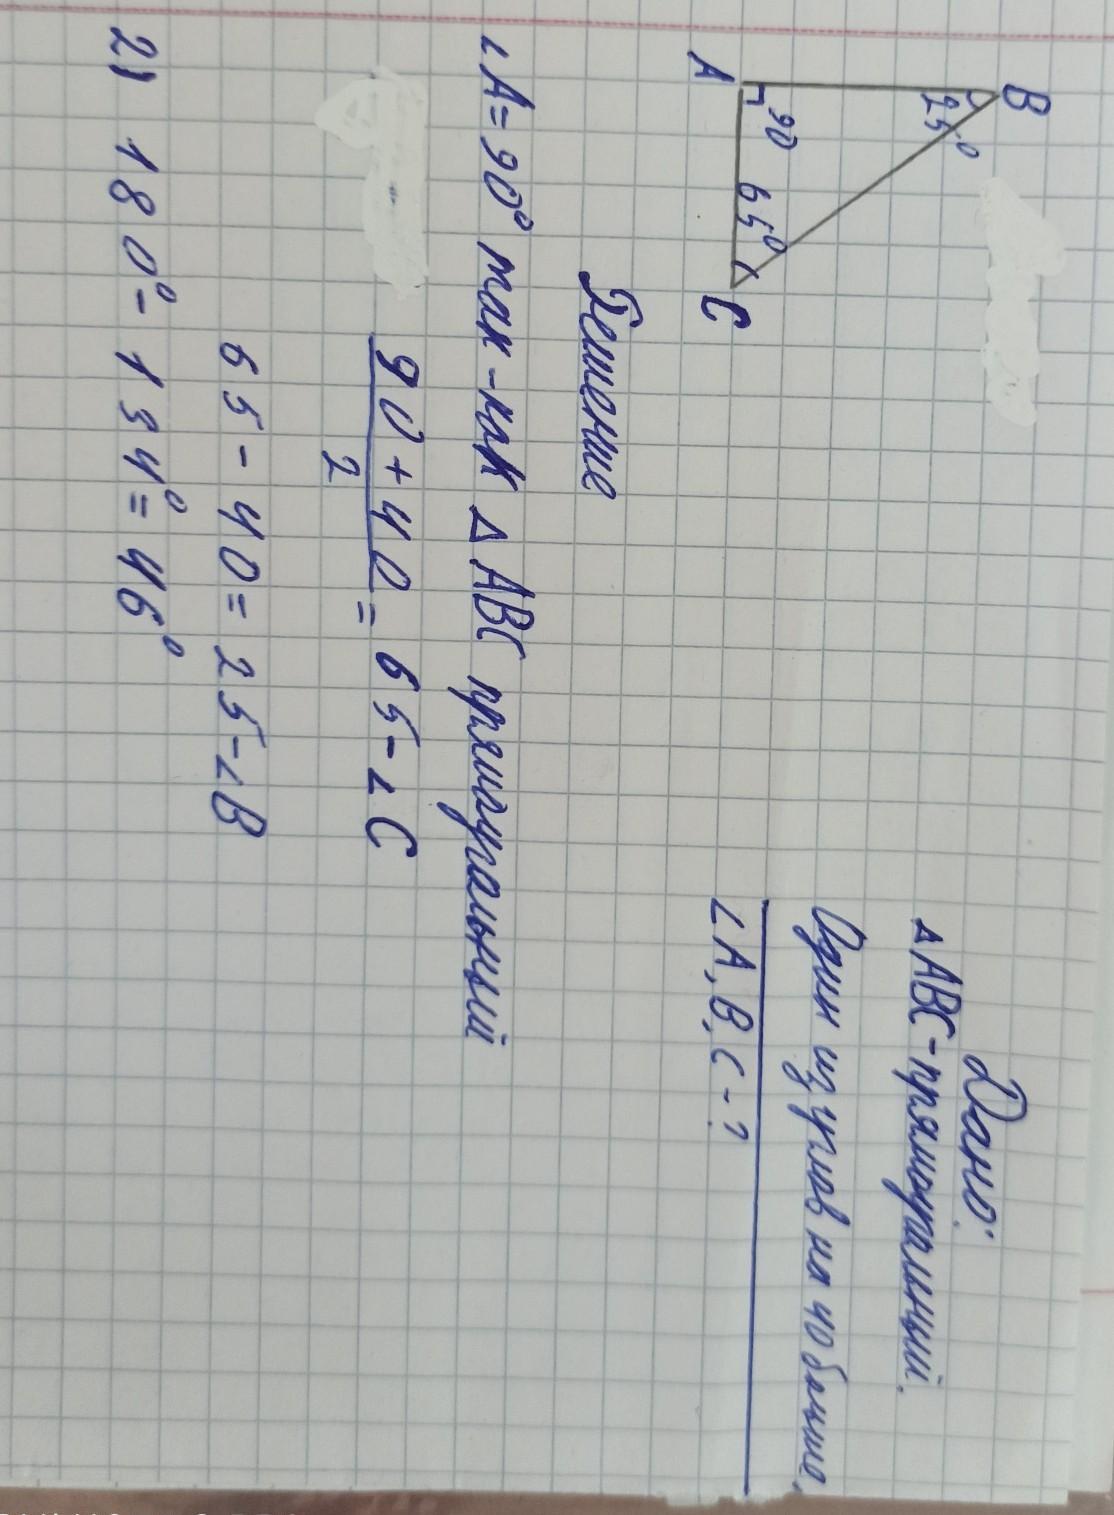 Дано:
△ABC - прямоугольный.
Один из углов на 40 больше.
∠A, B, C - ?
B
25°
90
65°
A
C
Решение
∠A = 90° так-как △ABC прямоугальный
90 + 40
2
= 65 - ∠C
65 - 40 = 25 - ∠B
2) 180° - 134° = 46°